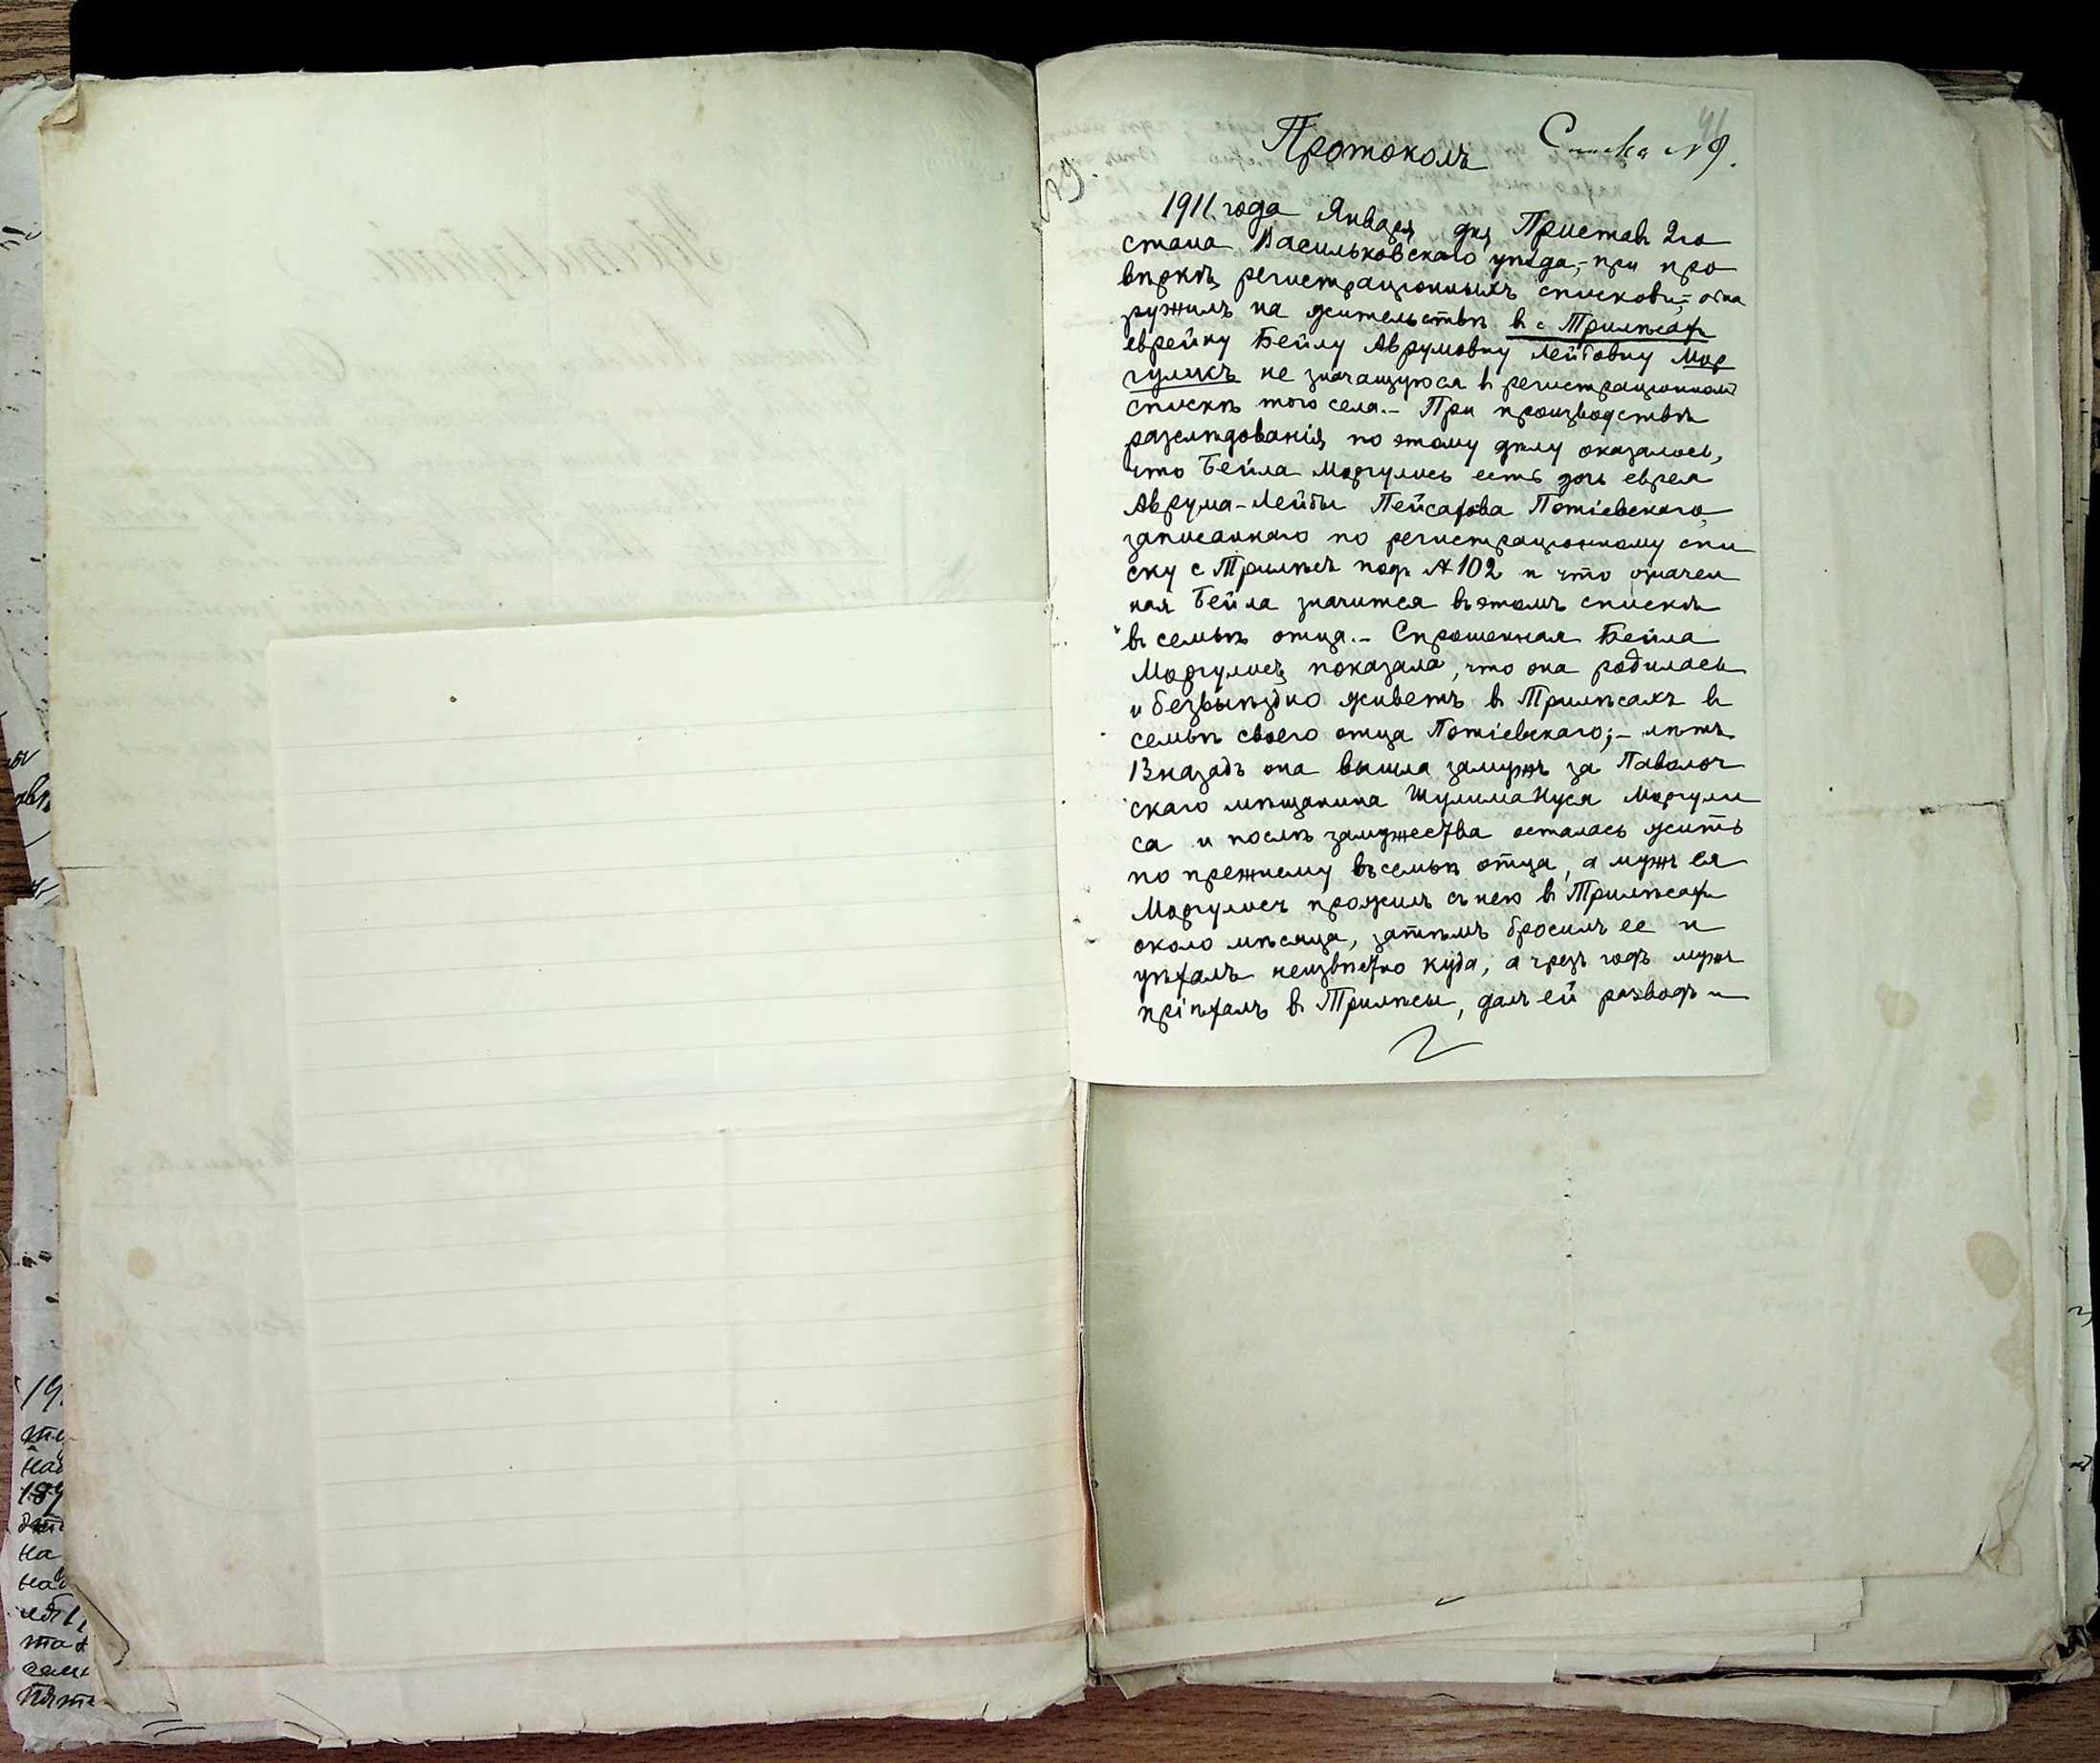 Протоколъ
41
Списка №9.
1911. года Января дня Пристав 2го
стана Васильковскаго уѣзда,- при про
вѣркѣ регистраціонныхъ списковъ,- обна
ружилъ на жительствѣ в с Трилѣсах
еврейку Бейлу Аврумовну Лейбовну Мор
гулисъ не значащуюся в регистраціонном
спискѣ того села.- При производствѣ
разслѣдованія по этому дѣлу оказалось,
что Бейла Моргулисъ есть дочь еврея
Аврума-Лейбы Пейсахова Потіевскаго,
записаннаго по регистраціонному спи
ску с Трилѣсъ подъ №102 и что означен
ная Бейла значится въ этомъ спискѣ
въ семьѣ отца.- Спрошенная Бейла
Моргулисъ показала, что она родилась
и безвыѣздно живетъ в Трилѣсахъ в
семьѣ своего отца Потіевскаго;- лѣтъ
13 назадъ она вышла замужъ за Паволоч
скаго мѣщанина Шулима Нуся Моргули
са и послѣ замужества осталась жить
по прежнему въ семьѣ отца, а мужъ ея
Моргулисъ прожилъ съ нею в Трилѣсах
около мѣсяца, затѣмъ бросилъ ее и
уѣхалъ неизвѣстно куда, а чрезъ годъ мужъ
пріѣхалъ в Трилѣсы, далъ ей разводъ и